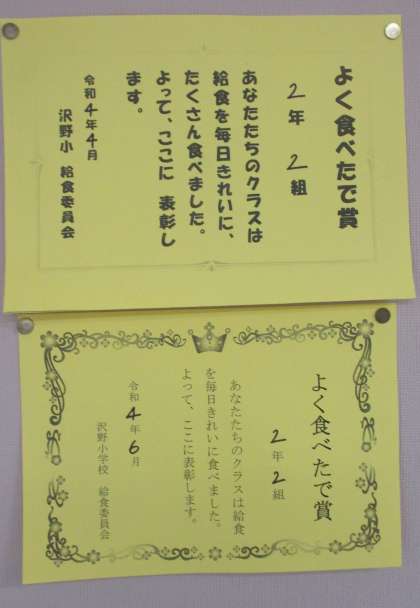 よく食べたで賞
2年 2組
あなたたちのクラスは
給食を毎日きれいに、
たくさん食べました。
よって、ここに 表彰し
ます。
令和4年4月
沢野小 給食委員会
よく食べたで賞
2年2組
あなたたちのクラスは給食
を毎日きれいに食べました。
よって、ここに表彰します。
令和4年6月
沢野小学校 給食委員会